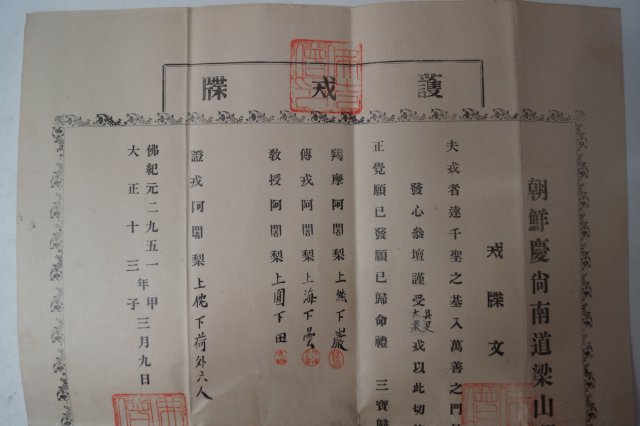 護戒牒
朝鮮慶尙南道梁山
戒牒文
夫戒者達千聖之基入萬善之門
發心叅壇謹受具足大乘戒以此切
正覺願已發願已歸命禮 三寶歸
羯摩阿闍梨上然下巖
傳戒阿闍梨上海下曇
敎授阿闍梨上圓下田
證戒阿闍梨上侘下荷外六人
佛紀元二九五一年甲子三月九日
大正十三